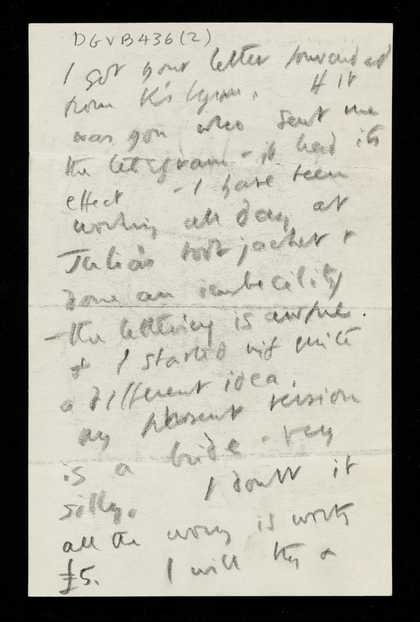 DGVB436(2)
I got your letter forwarded
from K's Lynn. If it
was you who sent me
the telegram - it had its
effect - I have been
working all day at
Julia's book jacket &
done an imbecility
- the lettering is awful.
& I started off quite
a different idea.
my present version
is a bride - very
silly. I doubt if
all the worry is worth
£5. I will try a